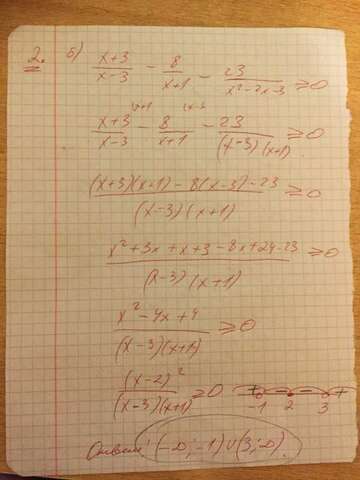 2. б) (x+3)/(x-3) - 8/(x+1) - 23/(x²-2x-3) ≥ 0
(x+3)/(x-3) - 8/(x+1) - 23/((x-3)(x+1)) ≥ 0
((x+3)(x+1) - 8(x-3) - 23)/((x-3)(x+1)) ≥ 0
(x²+3x+x+3-8x+24-23)/((x-3)(x+1)) ≥ 0
(x²-4x+4)/((x-3)(x+1)) ≥ 0
(x-2)²/((x-3)(x+1)) ≥ 0 + - - + -1 2 3
Ответ: (-∞; -1) ∪ (3; ∞).